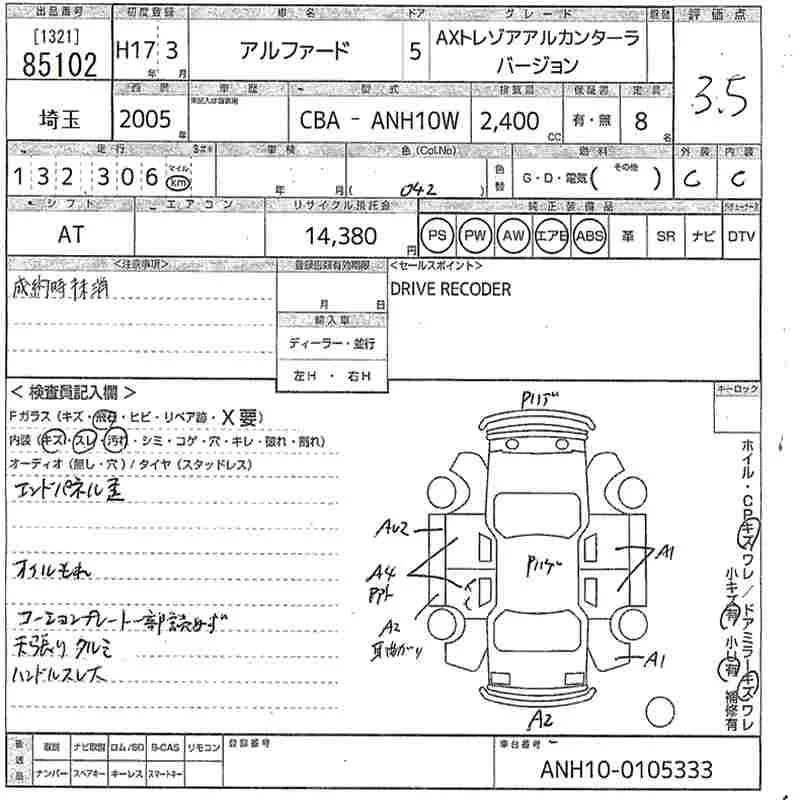 出品番号 初度登録 車名 ドア グレード 評価点
[1321]
85102
H17 3
年 月
アルファード
5
AXトレゾアアルカンターラ
バージョン
3.5
西暦 車歴 型式 排気量 保証書 定員
埼玉
2005
年
CBA - ANH10W
2,400
CC
有・無
8
名
走行 車検 色(Col.No) 燃料 外装 内装
132,306
マイル
km
年 月
( 042 )
色替
G・D・電気( その他 )
C C
シフト エアコン リサイクル預託金 純正装備品
AT
14,380
円
PS PW AW エアB ABS 革 SR ナビ DTV
<注意事項> 登録書類有効期限 <セールスポイント>
成約時抹消
月 日
DRIVE RECODER
輸入車
ディーラー・並行
左H ・ 右H
< 検査員記入欄 >
キーロック
Fガラス (キズ・飛石・ヒビ・リペア跡・X要)
内装 (キズ・スレ・汚れ・シミ・コゲ・穴・キレ・破れ・割れ)
オーディオ (無し・穴) / タイヤ (スタッドレス)
エンドパネル歪
オイルもれ
コーションプレート一部読めず
天張り タルミ
ハンドルスレ大
AU2
A4
A2
A1
A1
A2
ホイル・CPキズワレ / ドアミラーキズワレ
小キズ有 小U有 補修有
後送品
取説 ナビ取説 ロム/SD B-CAS リモコン
ナンバー スペアキー キーレス スマートキー
登録番号
車台番号
ANH10-0105333